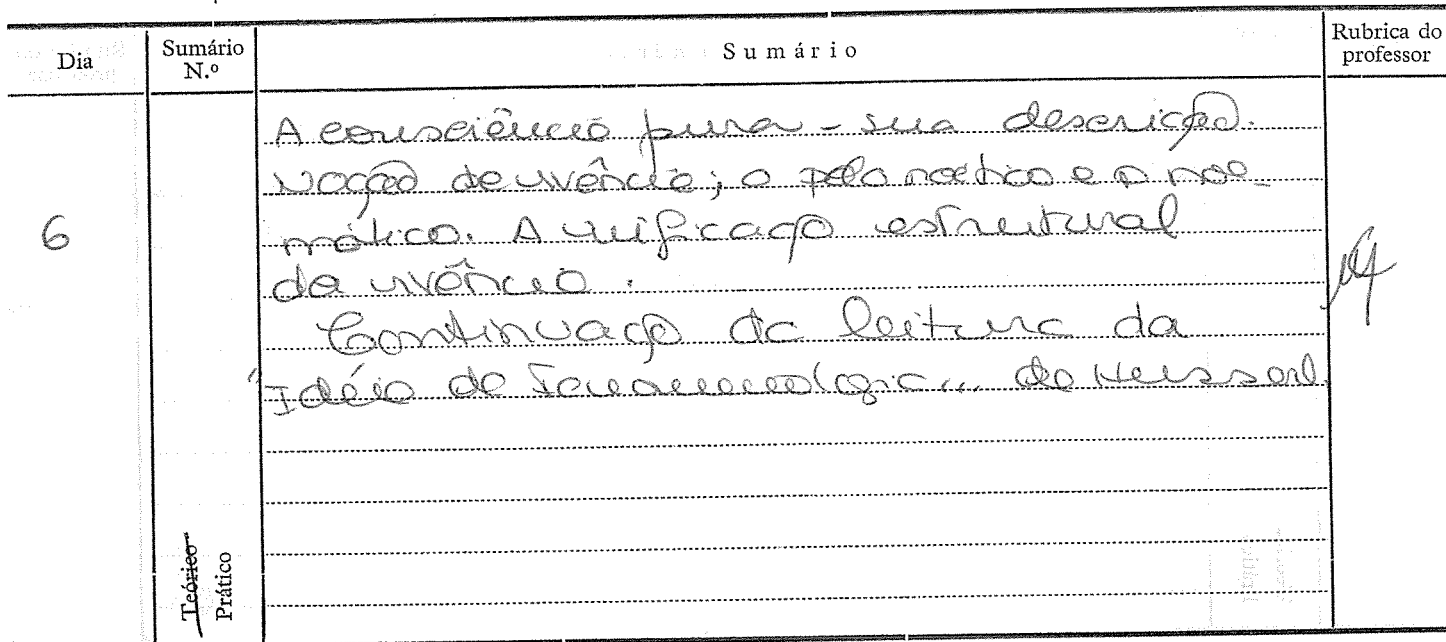 Dia
Sumário
N.º
Sumário
Rubrica do
professor
6
A consciência pura - sua descrição.
Noção de vivência; o pelo noético e o noe-
mático. A unificação estrutural
da vivência.
Continuação da leitura da
"Idéia de Fenomenologia... de Husserl
Teórico
Prático